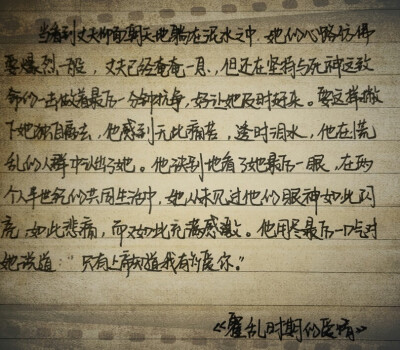 当看到丈夫仰面朝天地躺在泥水之中,她的心路仿佛
要爆烈一般,丈夫已经奄奄一息,但还在坚持与死神这致
命的一击做着最后一分钟抗争,好让她及时赶来。要这样撇
下她独自离去,他感到无比痛苦,透过泪水,他在慌
乱的人群中认出了她。他诀别地看了她最后一眼,在两
个人半世纪的共同生活中,她从未见过他的眼神如此闪
亮,如此悲痛,而又如此充满感激。他用尽最后一口气对
她说道:“只有上帝知道我有多爱你。”
《霍乱时期的爱情》